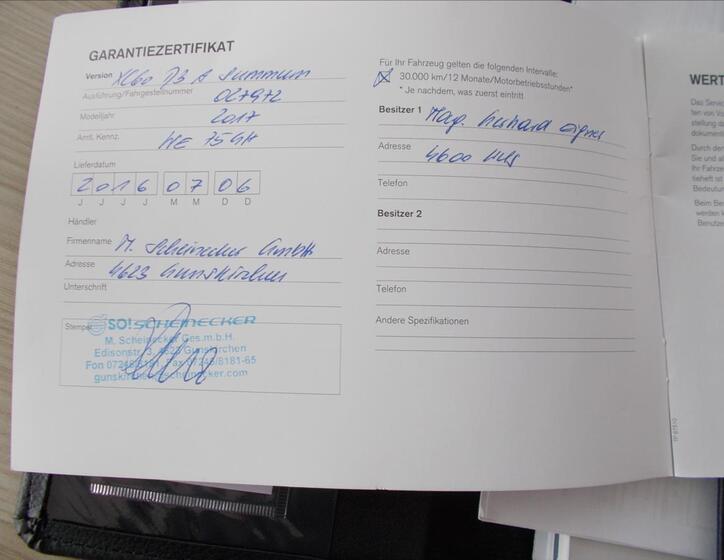 GARANTIEZERTIFIKAT
Version XC60 D3 A Summum
Ausführung/Fahrgestellnummer 027972
Modelljahr 2017
Amtl. Kennz. WE 75
Lieferdatum
2016 07 06
J J J J M M D D
Händler
Firmenname M. Scheinecker GmbH
Adresse 4623 Gunskirchen
Unterschrift
Stempel SO!SCHEINECKER
M. Scheinecker Ges.m.b.H.
Edisonstr. 3, 4623 Gunskirchen
Fon 07246/8181, Fax 07246/8181-65
scheinecker.com
Für Ihr Fahrzeug gelten die folgenden Intervalle:
30.000 km/12 Monate/Motorbetriebsstunden*
* Je nachdem, was zuerst eintritt
Besitzer 1 Mag. Gerhard
Adresse 4600 Wels
Telefon
Besitzer 2
Adresse
Telefon
Andere Spezifikationen
WERT
Das Servic
ten von Vo
stellung d
dokument
Durch den
Sie und al
Ihr Fahrze
tieheft ist
Bedeutun
Beim Bes
werden
Benutze